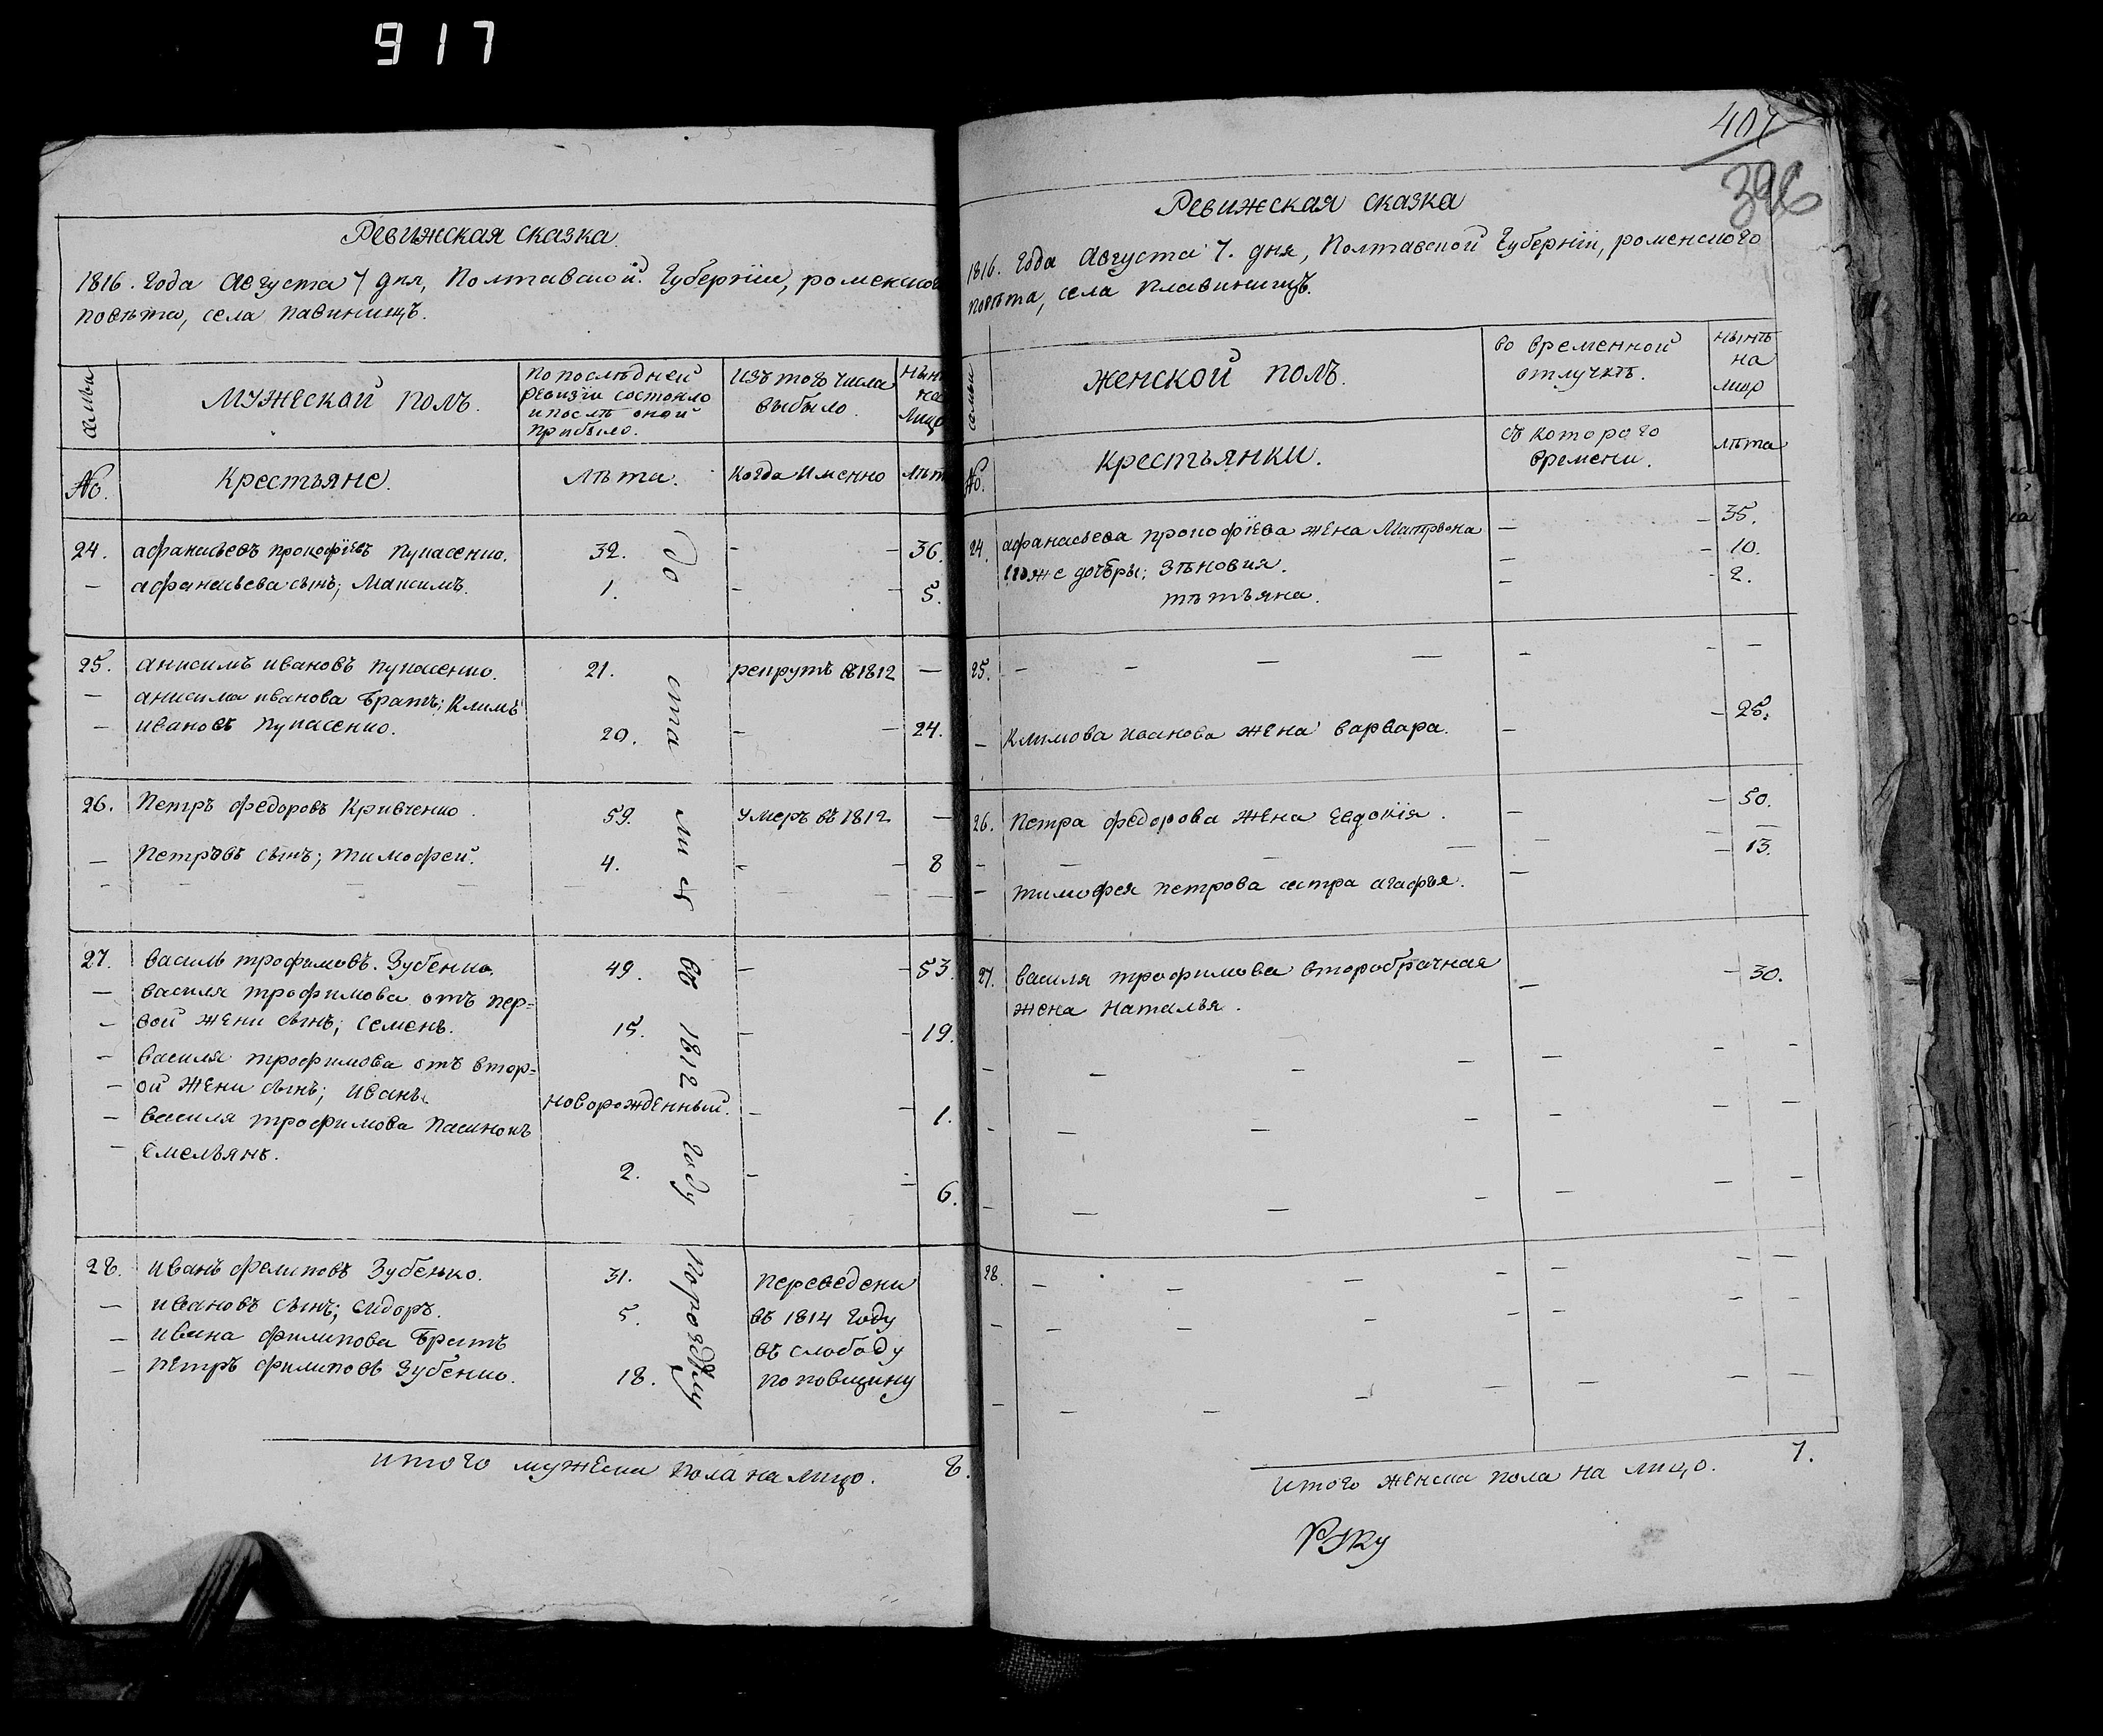 917
Ревижская сказка
1816. года августа 7 дня, Полтавской Губерніи, роменского
повѣта, села павинищъ.
семьи
мужеской полъ.
По послѣдней ревизіи состояло и послѣ оной прибыло.
изъ того числа выбыло.
нынѣ на лицо
No.
Крестьяне.
лѣта.
когда именно
лѣта
24. афанасьевъ прокофіевъ Пукасенко. 32. — — 36.
— афанасьева сынъ; Максимъ. 1. — — 5.
25. анисимъ ивановъ Пукасенко. 21. рекрутъ въ 1812 —
— анисима иванова братъ; Климъ
— ивановъ Пукасенко. 20. — — 24.
26. Петръ федоровъ Кривченко. 59. умеръ въ 1812 —
— Петровъ сынъ; тимофей. 4. — — 8
27. василь трофимовъ. Зубенко. 49. — — 53.
— василя трофимова отъ пер=
— вой жени сынъ; семенъ. 15. — — 19.
— василя трофимова отъ втор=
— ой жени сынъ; иванъ. новорожденный. — — 1.
— василя трофимова пасинокъ
— емельянъ. 2. — — 6.
28. иванъ филиповъ Зубенко. 31. переведени
— ивановъ сынъ; сидоръ. 5. въ 1814 году
— ивана филипова братъ въ слободу
— петръ филиповъ Зубенко. 18. поповщину
въ 1812 году
итого мужеска пола на лицо. 8.
407
396
Ревижская сказка
1816. года августа 7. дня, Полтавской Губерніи, роменского
повѣта, села плавинищъ.
семьи
женской полъ.
во временной отлучкѣ.
нынѣ на лицо
No.
крестьянки.
съ которого времени.
лѣта
24. афанасьева прокофіева жена Матрвона — — 35.
тояже дочери: зѣновия. — — 10.
тѣтьяна. — — 2.
25. — — — — — — —
— Климова иванова жена варвара. — — 25.
26. Петра федорова жена евдокія. — — 50.
— тимофея петрова сестра агафья. — — 13.
27. василя трофимова второбрачная — — 30.
жена наталья.
28. — — — — — — —
итого женска пола на лицо. 7.